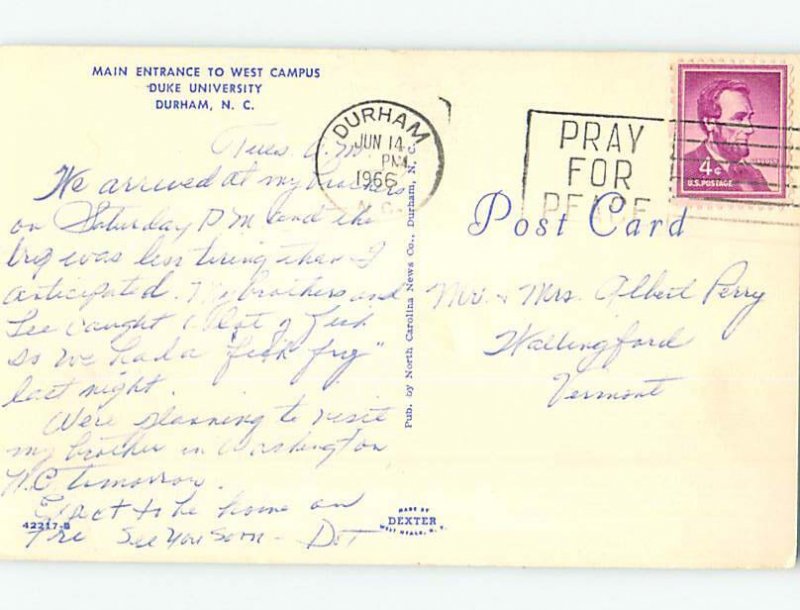 MAIN ENTRANCE TO WEST CAMPUS
DUKE UNIVERSITY
DURHAM, N. C.
Tues A.M.
We arrived at my brothers
on Saturday P M and the
trip was less tiring than I
anticipated. My brothers and
Lee caught a lot of fish
so we had a "fish fry"
last night.
Were planning to visit
my brother in Washington
N.C tomorrow.
Expect to be home on
Fri See you soon - Dot
42217-B
MADE BY
DEXTER
WEST NYACK, N. Y.
Pub. by North Carolina News Co., Durham, N. C.
DURHAM
JUN 14
PM
1966
N.C.
PRAY
FOR
PEACE
4¢
U.S. POSTAGE
Post Card
Mr. & Mrs. Albert Perry
Wallingford
Vermont